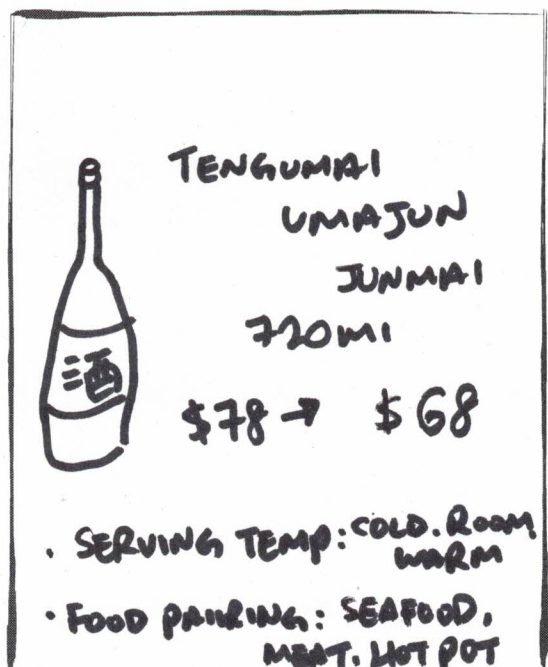 TENGUMAI
UMAJUN
JUNMAI
720ml
酒
$78 → $68
· SERVING TEMP: COLD. ROOM
WARM
· FOOD PAIRING: SEAFOOD,
MEAT. HOT POT